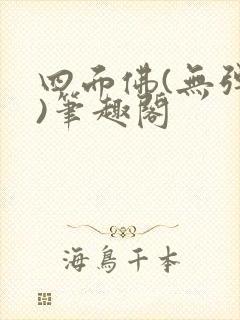 四而佛(無彈
)筆趣閣
海鳥千本